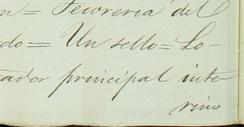 n= Tesoreria del
do= Un sello= Lo-
tador principal inte
rino